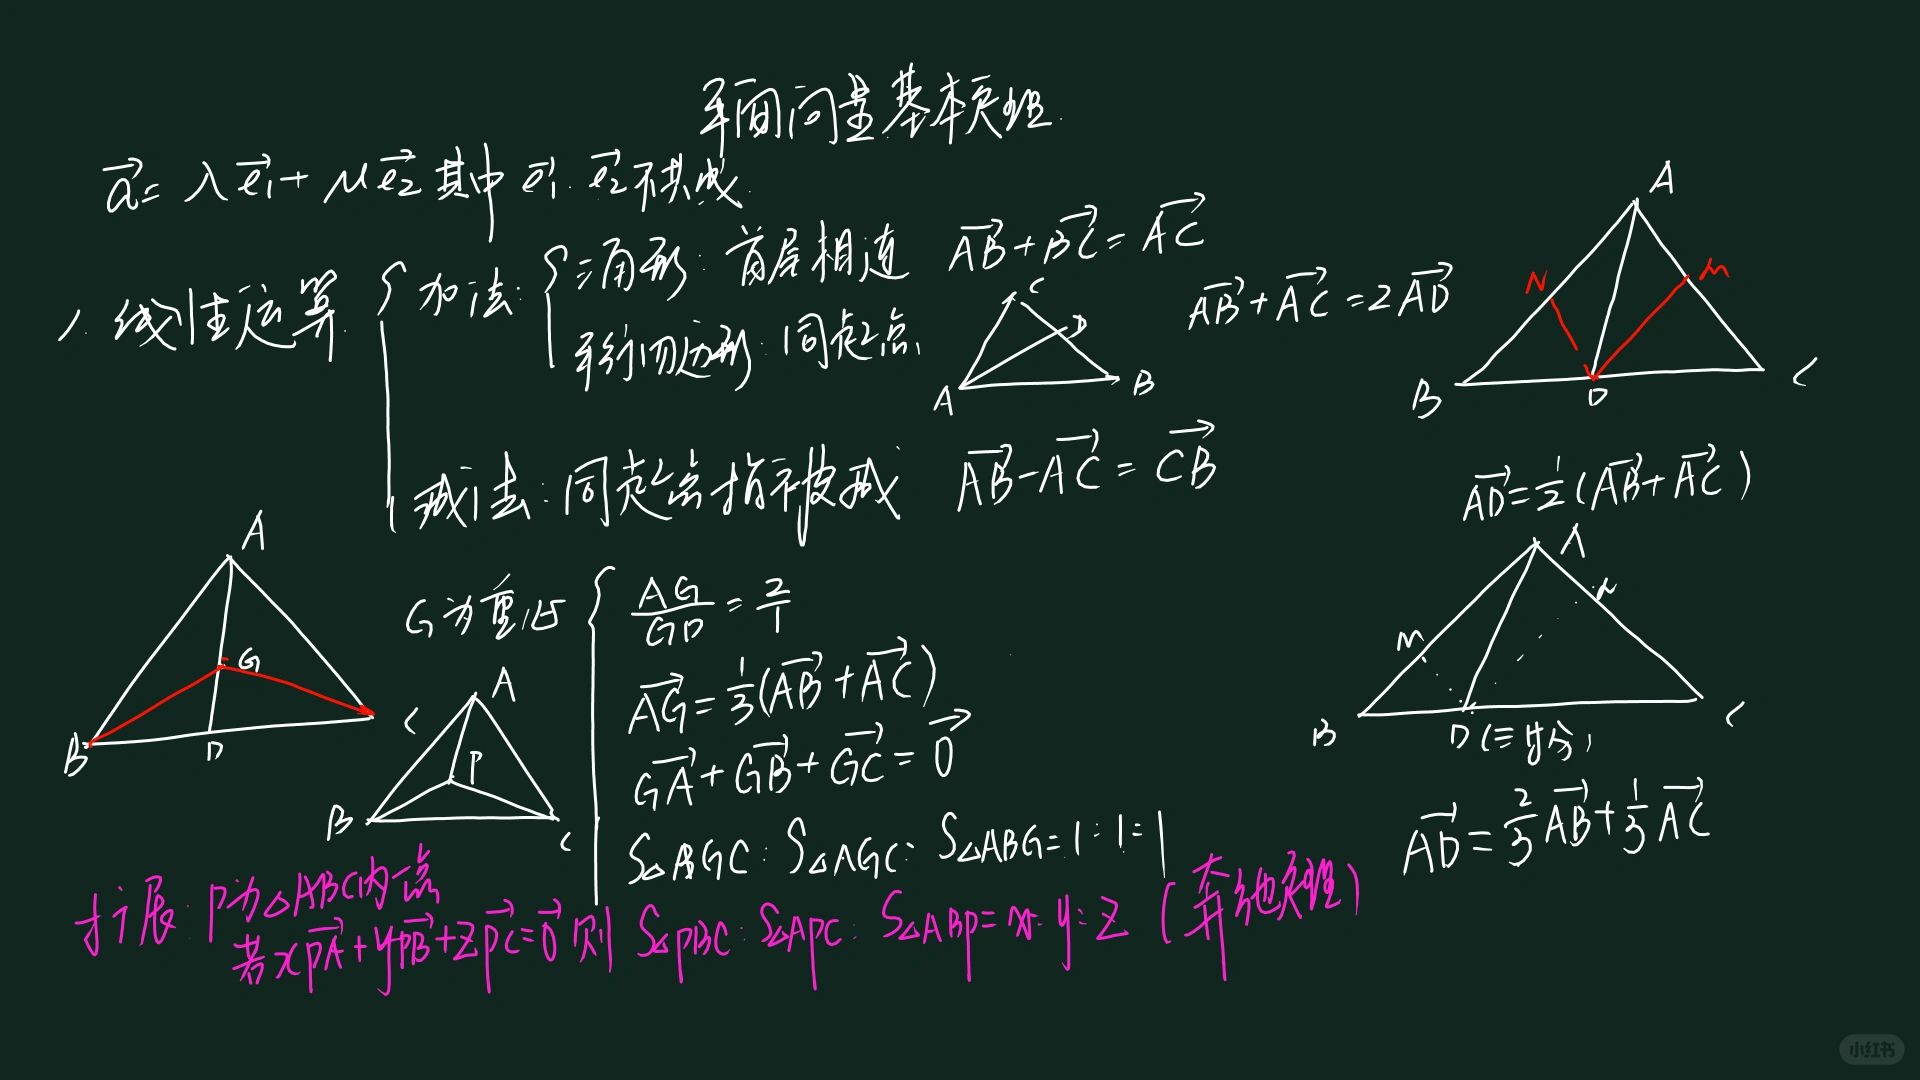 平面向量基本定理
a⃗ = λe⃗₁ + μe⃗₂ 其中 e⃗₁. e⃗₂不共线.
1. 线性运算
加法:
三角形: 首尾相连 AB⃗ + BC⃗ = AC⃗
平行四边形: 同起点
C
D
A
B
AB⃗ + AC⃗ = 2AD⃗
减法: 同起点指被减 AB⃗ - AC⃗ = CB⃗
A
N
M
B
D
C
AD⃗ = 1/2 (AB⃗ + AC⃗)
A
G
B
D
C
G为重心
AG/GD = 2/1
AG⃗ = 1/3 (AB⃗ + AC⃗)
GA⃗ + GB⃗ + GC⃗ = 0⃗
S△BGC : S△AGC : S△ABG = 1 : 1 : 1
A
P
B
C
A
M
B
D (三等分)
C
AD⃗ = 2/3 AB⃗ + 1/3 AC⃗
扩展: P为△ABC内一点
若xPA⃗ + yPB⃗ + zPC⃗ = 0⃗ 则 S△PBC : S△APC : S△ABP = x : y : z (奔驰定理)
小红书